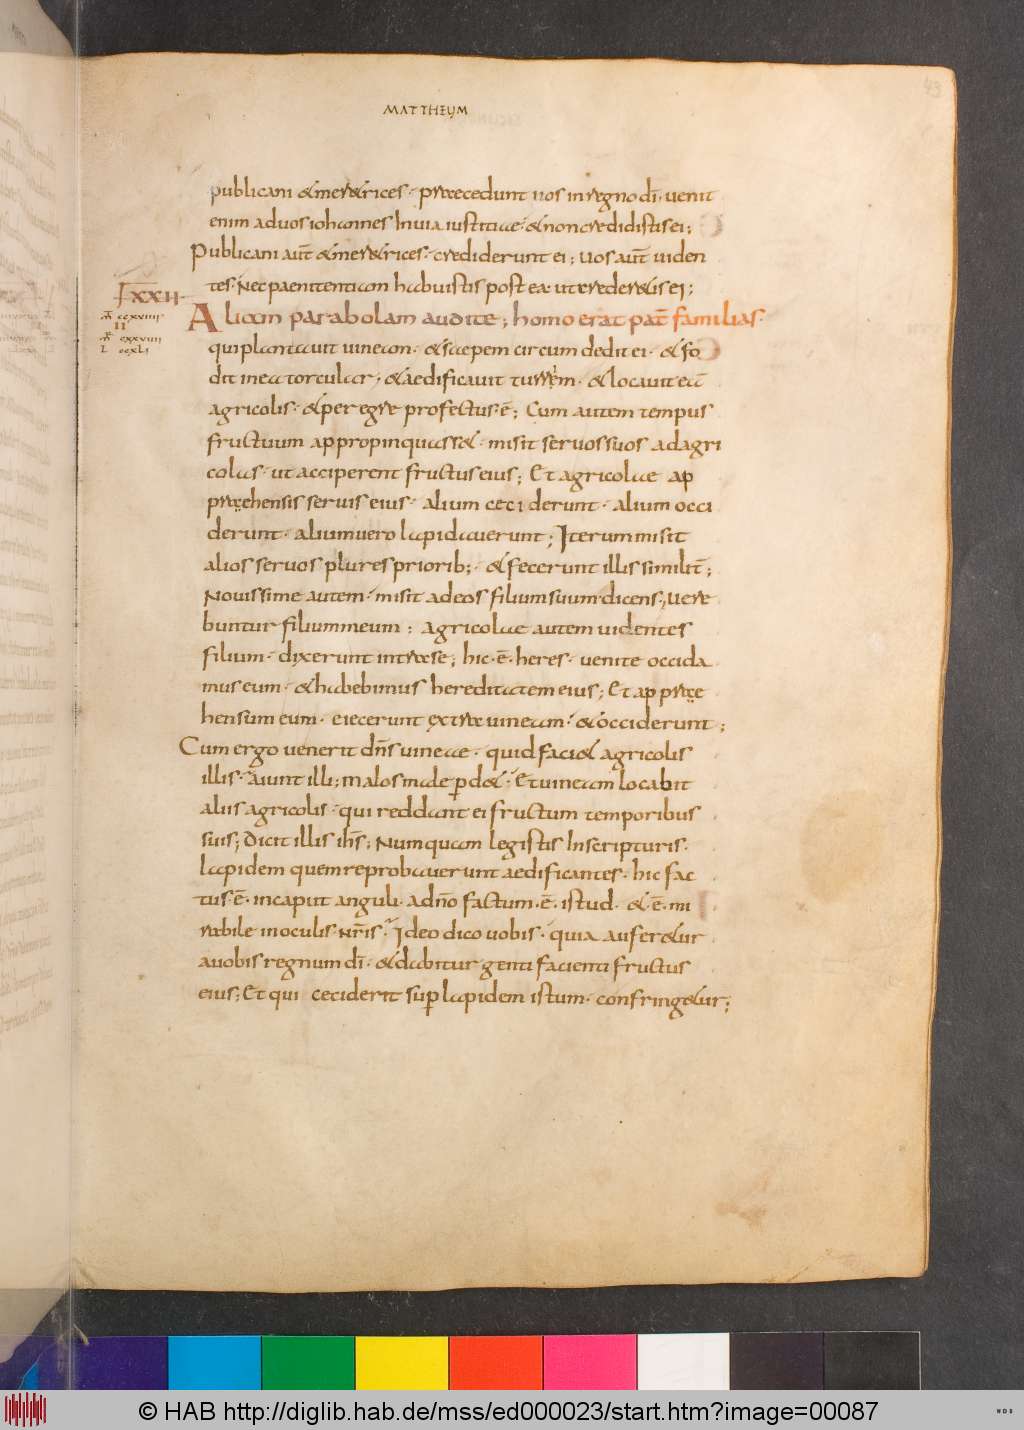 43
MATTHEUM
publicani & mer&rices · praecedunt uos in regno dī · uenit
enim ad uos iohannes In uia iustitiae · & non credidistis ei ;
Publicani aut̄ & mer&rices · crediderunt ei ; Uos aut̄ uiden
tes · Nec paenitentiam habuistis postea · ut creder&is ei ;
LXXII
Aliam parabolam audite ; homo erat pat̄ familias ·
ccxviiii
II
cxxviiii
L ccxLi
qui plantauit uineam · & saepem circumdedit ei · & fo
dit in ea torcular ; & aedificauit turrem · & locauit eā
agricolis · & peregre profectus · ē ; Cum autem tempus
fructuum appropinquass& · misit seruos suos ad agri
colas · ut acciperent fructus eius ; Et agricolae ap
praęhensis seruis eius · alium ceciderunt · alium occi
derunt · alium uero lapidauerunt ; Iterum misit
alios seruos plures priorib; · & fecerunt illis similit̄ ;
Nouissime autem · misit ad eos filium suum dicens ; Uere
buntur filium meum ; agricolae autem uidentes
filium · dixerunt intra se ; hic · ē · heres · uenite occida
mus eum · & habebimus hereditatem eius ; Et appraę
hensum eum · eiecerunt extra uineam · & occiderunt ;
Cum ergo uenerit dn̄s uineae · quid faci& agricolis
illis · aiunt illi ; malos male pd& · Et uineam locabit
aliis agricolis · qui reddant ei fructum temporibus
suis ; Dicit illis ih̄s ; Numquam legistis In scripturis ·
lapidem quem reprobauerunt aedificantes · hic fac
tus · ē · in caput anguli · a dn̄o factum · ē · istud · & · ē · mi
rabile in oculis · nr̄is · Ideo dico uobis · quia aufer&ur
a uobis regnum dī · & dabitur genti facienti fructus
eius ; Et qui ceciderit sup lapidem istum · confring&ur ;
© HAB http://diglib.hab.de/mss/ed000023/start.htm?image=00087